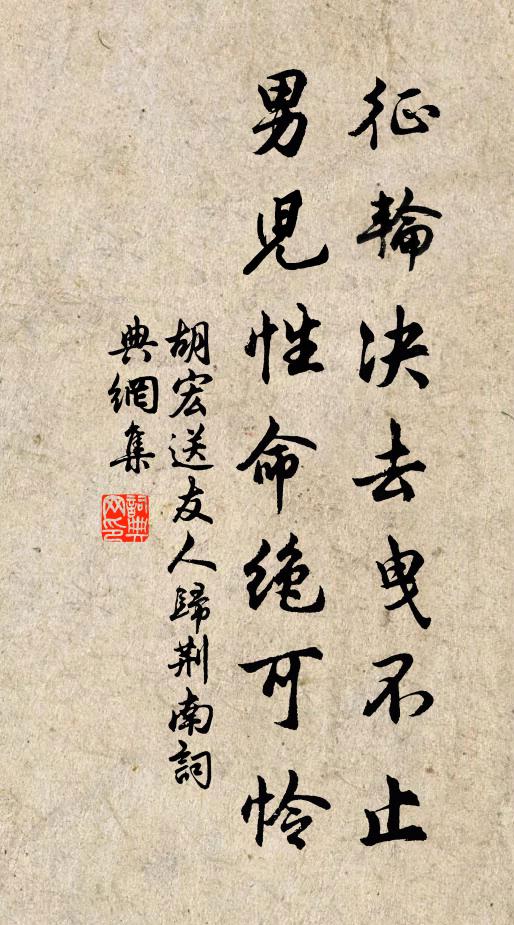 征輪決去曳不止
男兒性命絶可怜
胡宏送友人歸荆南詞
典網集
詞典网印